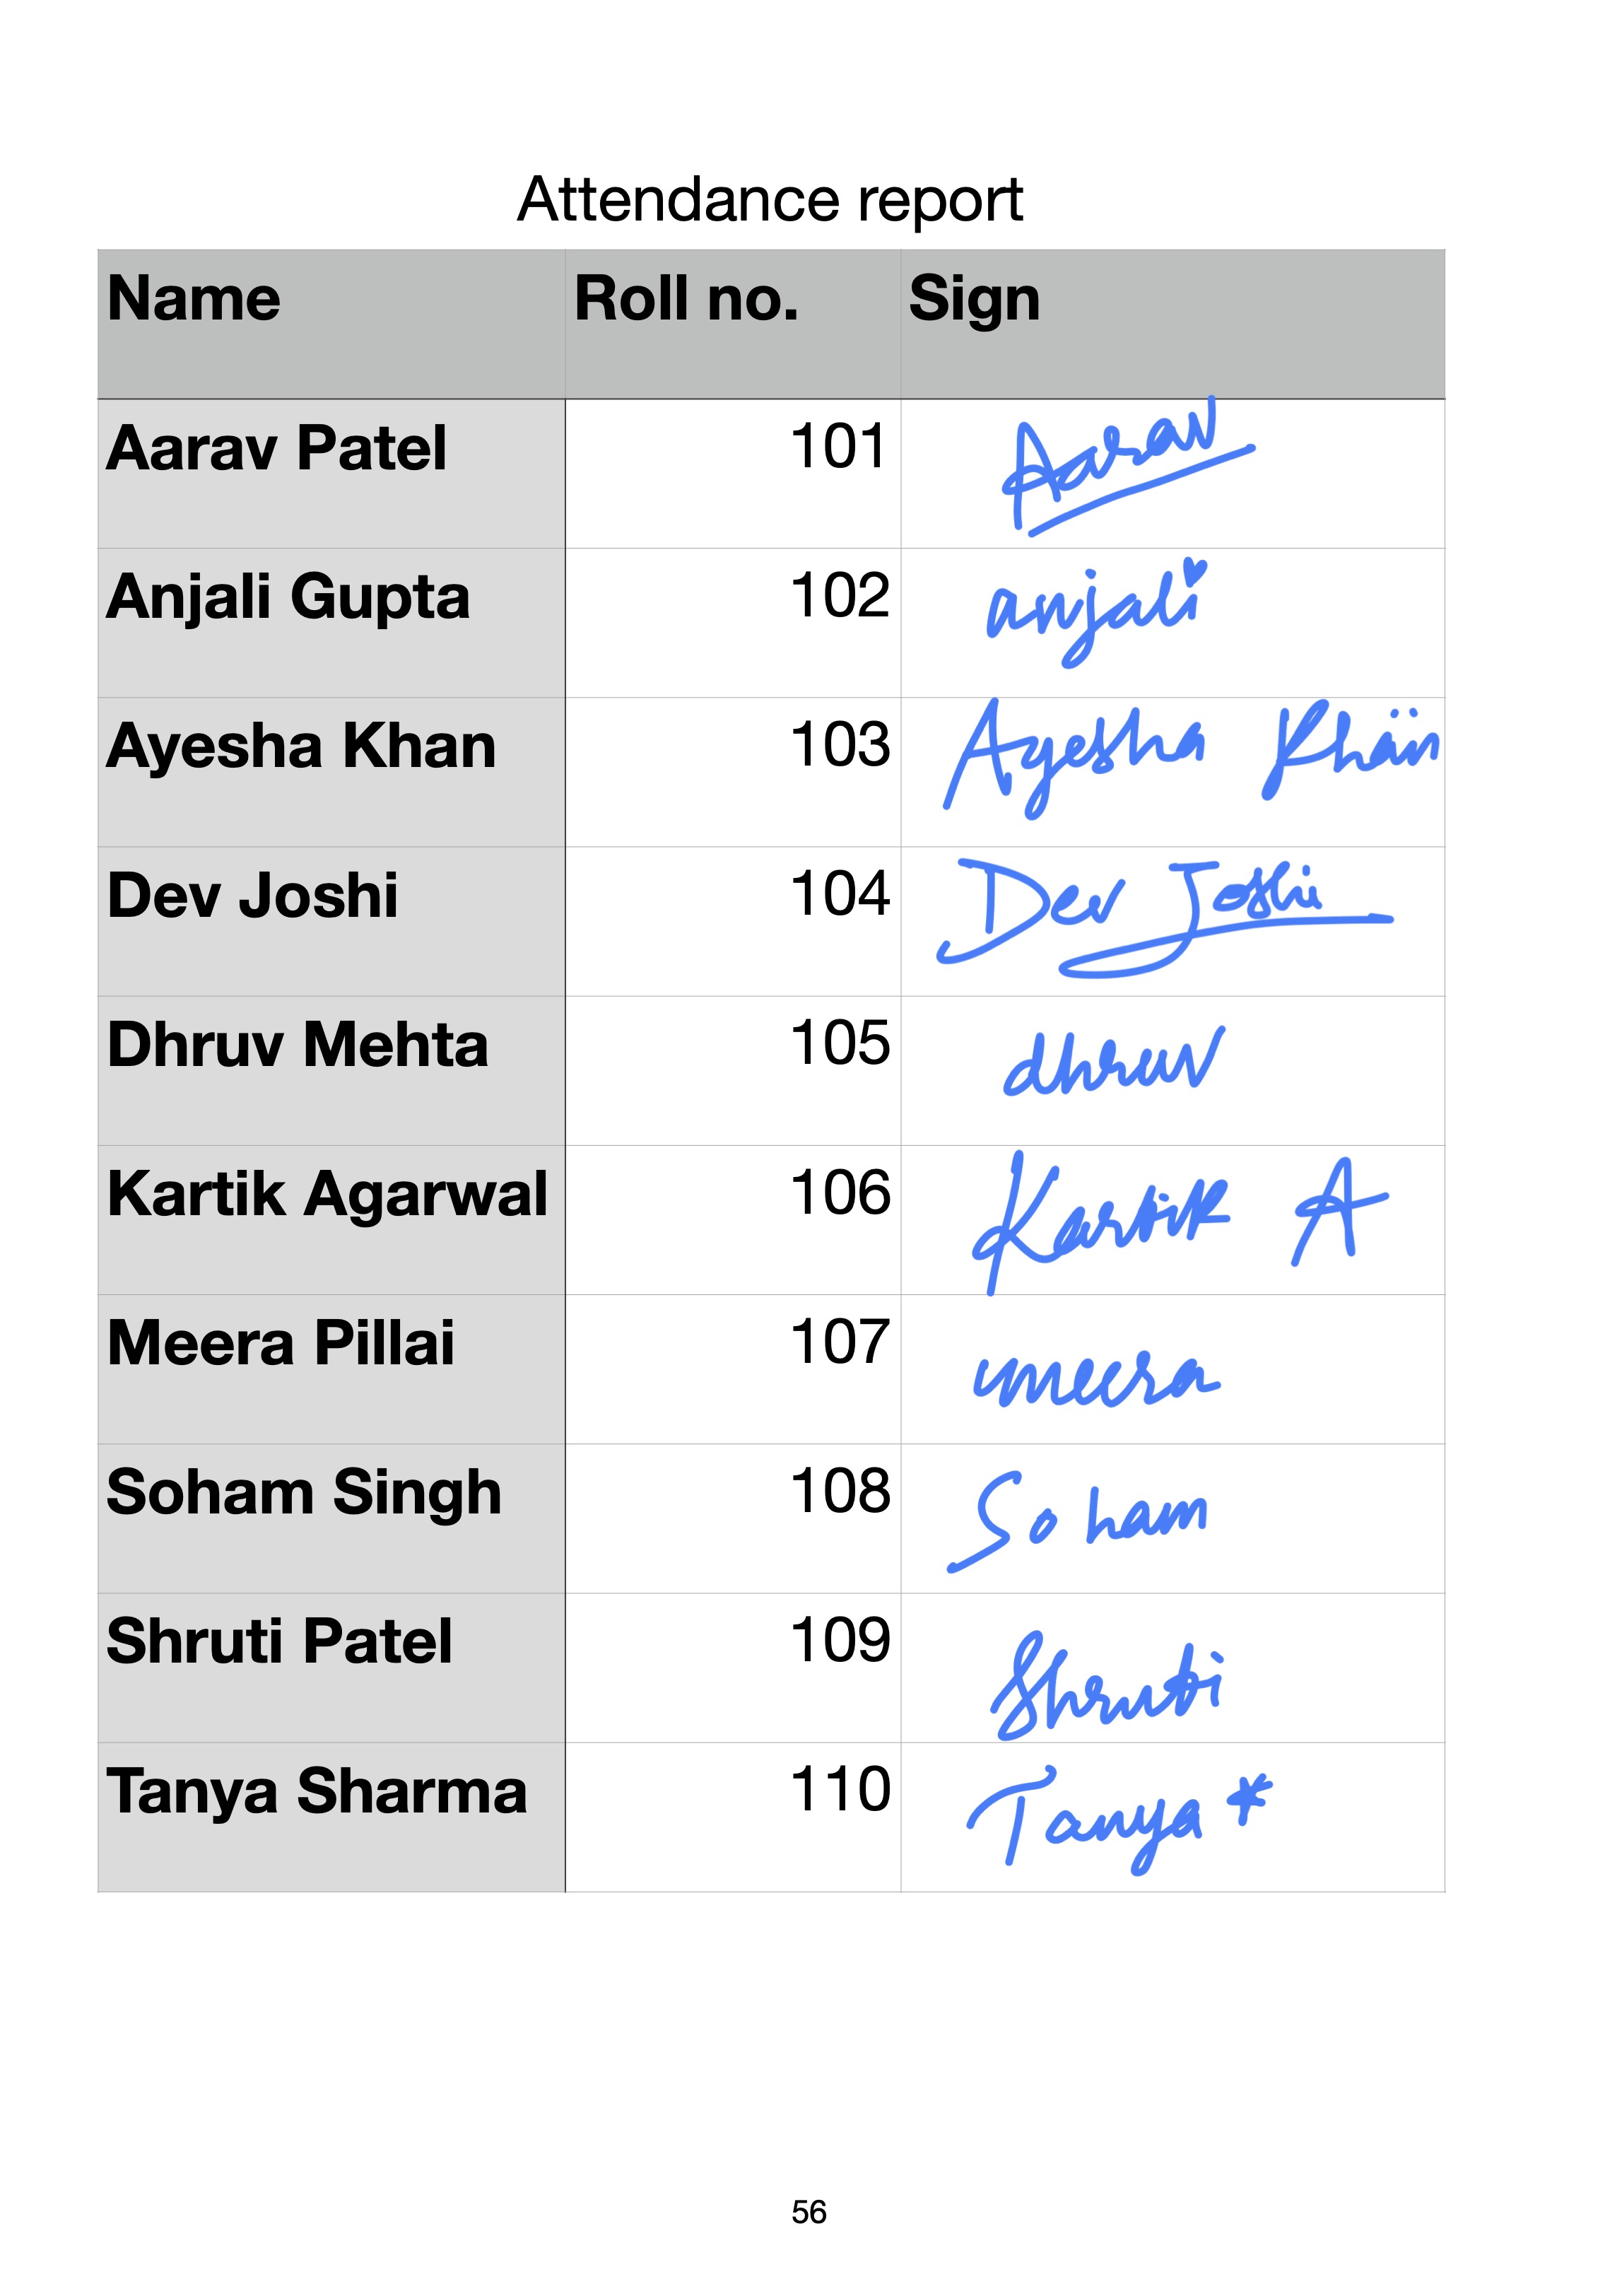 Attendance report
Name Roll no. Sign
Aarav Patel 101 Aarav
Anjali Gupta 102 anjali
Ayesha Khan 103 Ayesha Khan
Dev Joshi 104 Dev Joshi
Dhruv Mehta 105 dhruv
Kartik Agarwal 106 Kartik A
Meera Pillai 107 meera
Soham Singh 108 Soham
Shruti Patel 109 Shruti
Tanya Sharma 110 Tanya *
56